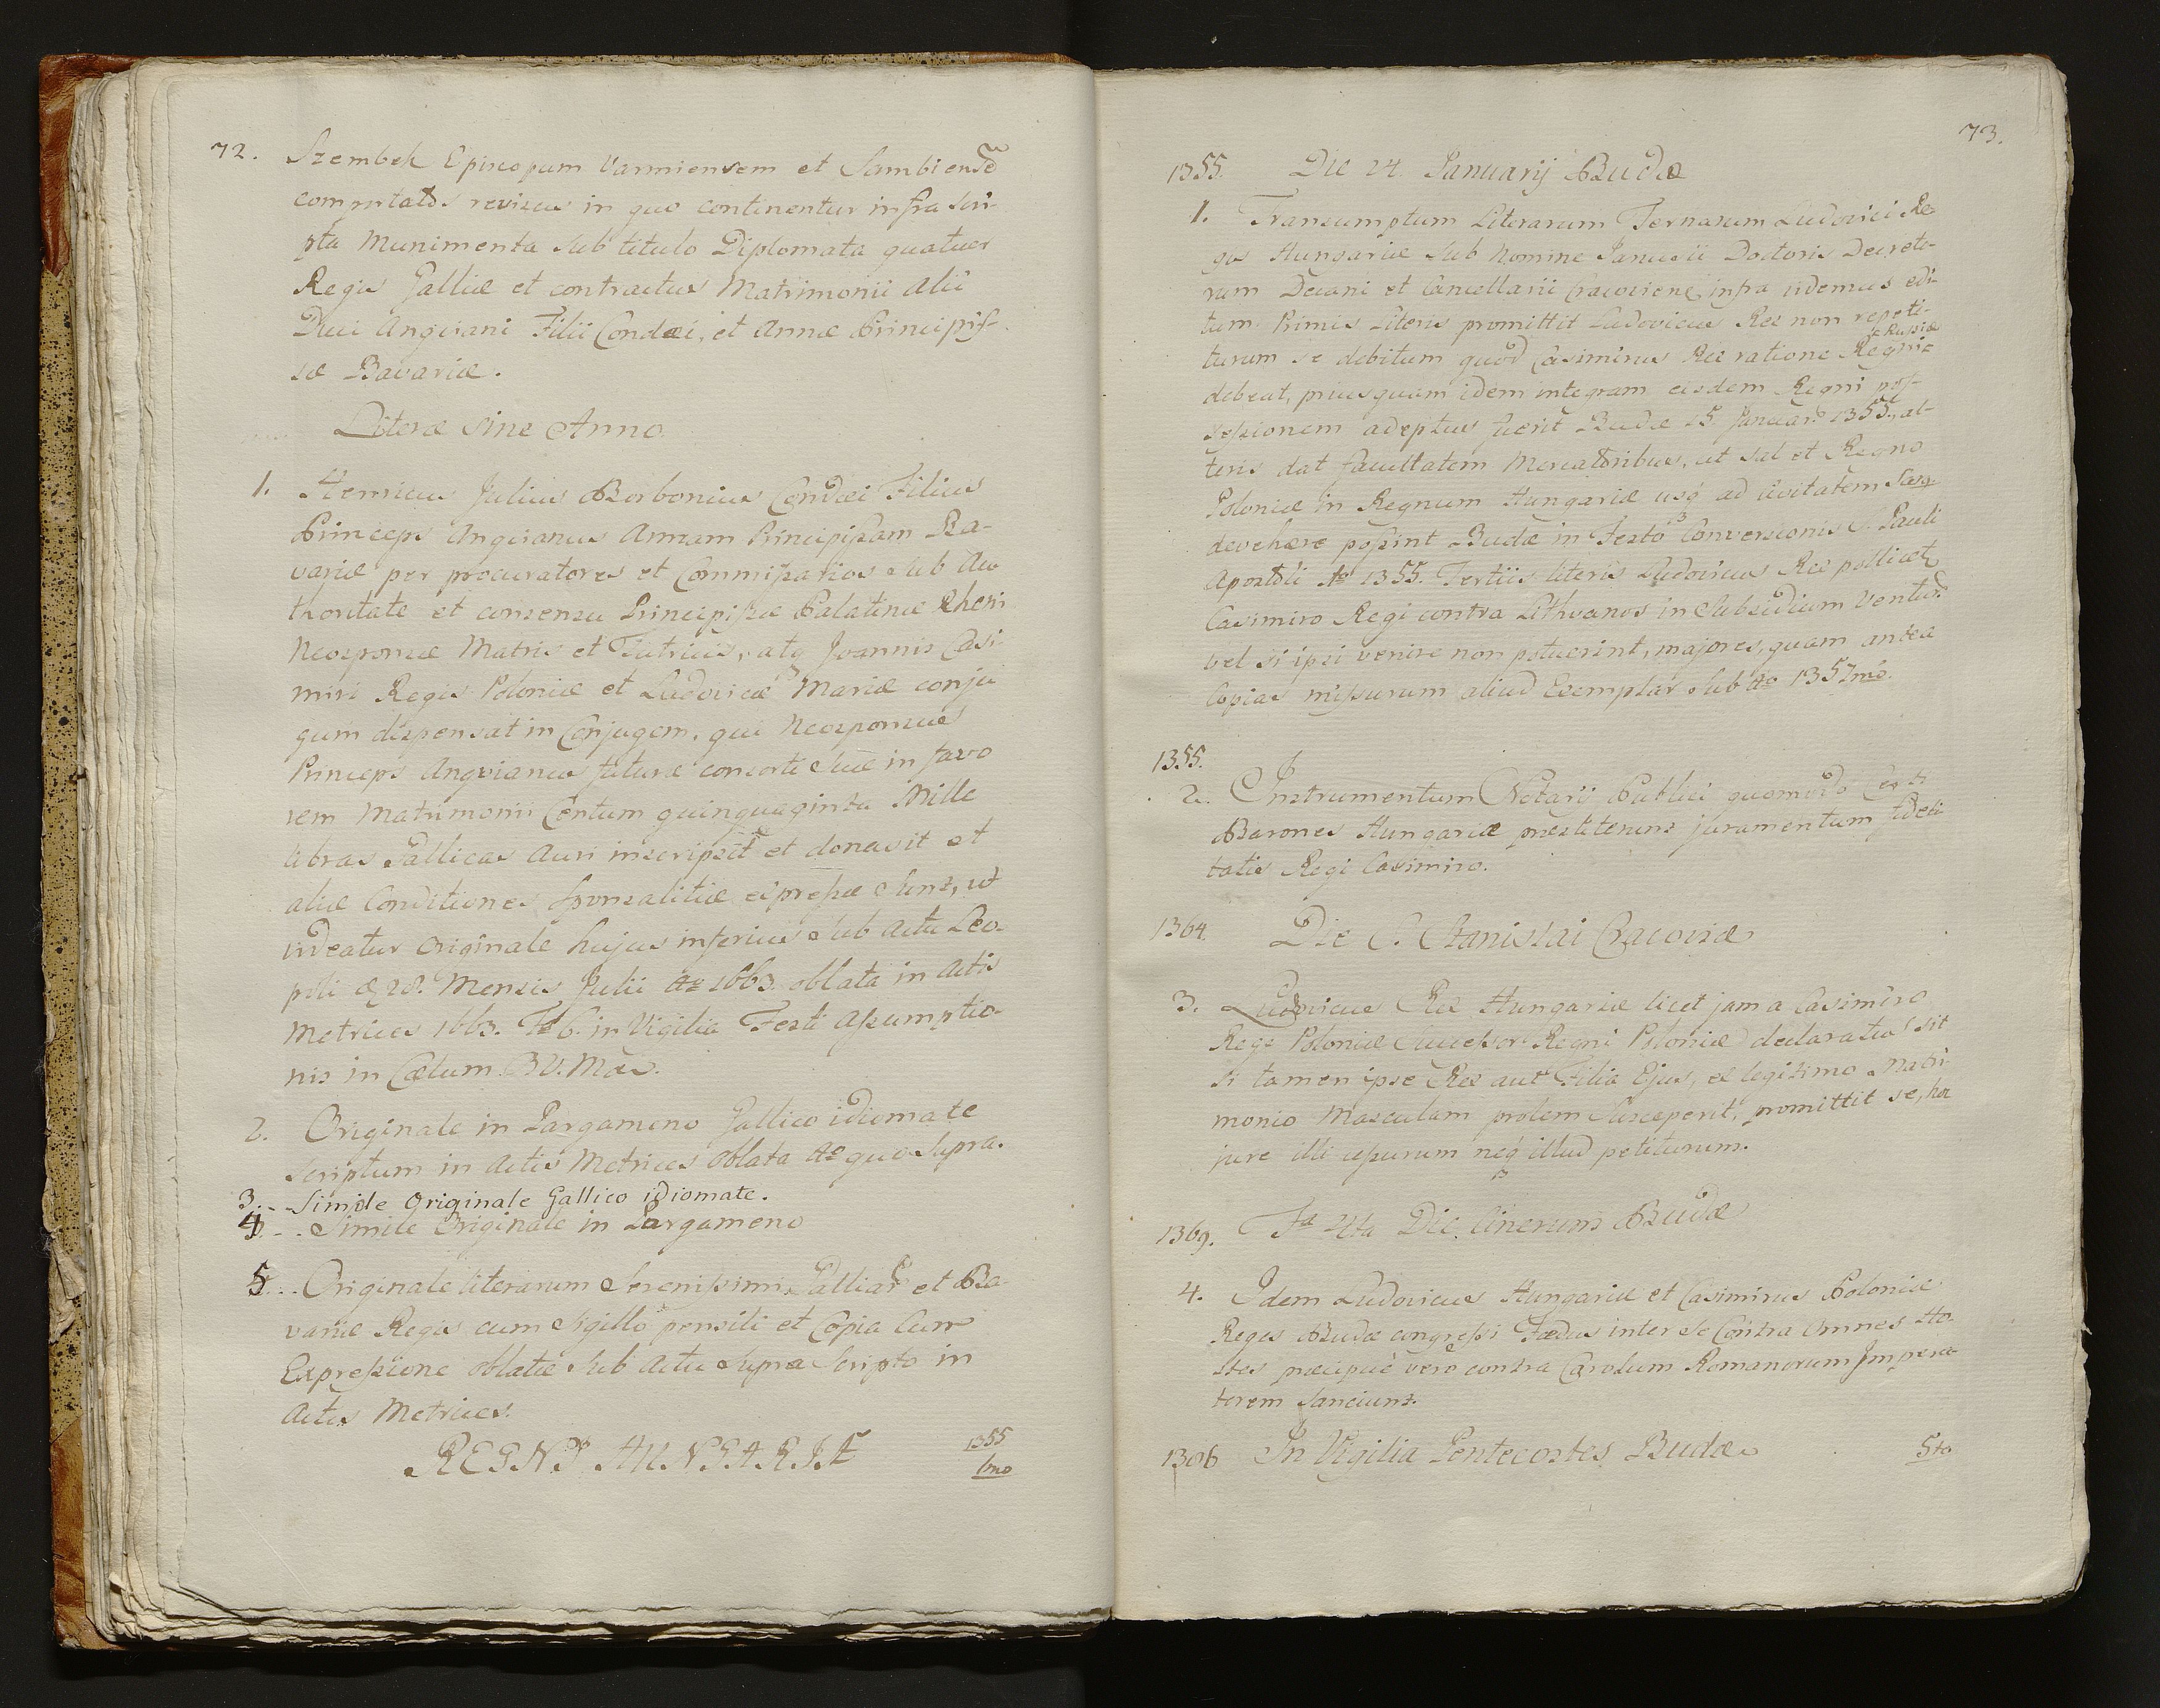 72.
Szembek Episcopum Varmiensem et Sambiensē
comportatōs revisus in quo continentur infra scri-
pta Munimenta sub titulo Diplomata quatuor
Regis Galliæ et contractus Matrimonii alii
Duci Angviani Filii Condæi, et Annæ Principis-
sæ Bavariæ.
Literæ sine Anno.
1. Henricus Julius Borbonius Condæi Filius
Princeps Angvianus Annam Principissam Ba-
variæ per procuratores et Commissarios sub Au
thoritate et consensu Principissæ Palatinæ Rheni
Neosponsæ Matris et Tutricis, atq Joannis Casi-
miri Regis Poloniæ et Ludovicæ Mariæ conju
gum dispensat in Conjugem, qui Neosponsus
Princeps Angvianus futuræ consorti suæ in favo
rem Matrimonii Centum quinquaginta Mille
libras Gallicas Auri inscripsit et donavit et
aliæ Conditiones sponsalitiæ expressæ sunt, ut
videatur Originale hujus inferius sub Actu Leo-
poli 28. Mensis Julii Ao 1663. oblata in Actis
Metrices 1663. Fr 6. in Vigilia Festi Assumptio-
nis in Cælum B V. Mæ.
2. Originale in Pargameno Gallico idiomate
scriptum in Actis Metrices oblata Ao quo supra.
3. - - Simile Originale Gallico idiomate.
4. - . Simile Originale in Pargameno
5. . . Originale literarum Serenissimi Galliar et Ba-
variæ Regis cum Sigillo pensili et Copia Cum
Expressione oblatæ sub Actu supra scripto in
Actis Metrices.
REGNI HUNGARIÆ
1355
1mo
73.
1355. Die 24. Januarij Budæ
1. Transumptum Literarum Ternarum Ludovici Re-
gis Hungariæ sub Nomine Janusii Doctoris Decreto-
rum Decani et Cancellarii Cracovienẽ, infra videmus edi-
tum. Primis Literis promittit Ludovicus Rex non repeti-
turum se debitum quod Casimirus Rex ratione Regni Russiæ
debeat, priusquam idem integram eiusdem Regni pos-
sessionem adeptus fuerit Budæ 15. Januar. 1355., al-
teris dat facultatem Mercatoribus, ut sal et Regno
Poloniæ in Regnum Hungariæ usq ad civitatem Sasg.
devehere possint Budæ in Festo Conversionis S. Pauli
Apostoli Ao 1355. Tertiis literis Ludovicus Rex pollicet
Casimiro Regi contra Lithvanos in Subsidium Ventur
vel si ipsi venire non potuerint, majores, quam antea
Copias missurum aliud Exemplar sub Ao 1357mo.
1355.
2. Instrumentum Notarii Publici quomodo Certi
Barones Hungariæ præstiterunt juramentum fideli
tatis Regi Casimiro.
1364. Die S. Stanislai Cracoviæ
3. Ludovicus Rex Hungariæ licet jam a Casimiro
Rege Poloniæ Successor Regni Poloniæ declaratus sit
si tamen ipse Rex aut Filia Ejus, ex legitimo Matri-
monio Masculam prolem susceperit, promittit se, hoc
jure illi cessurum neq illud petiturum.
1369. Fa 4ta Die Cinerum Budæ
4. Idem Ludovicus Hungariæ et Casimirus Poloniæ
Reges Budæ congressi Fœdus inter se Contra Omnes Ho-
stes præcipuè vero contra Carolum Romanorum Impera-
torem sanciunt.
1386 In Vigilia Pentecostes Budæ
5to